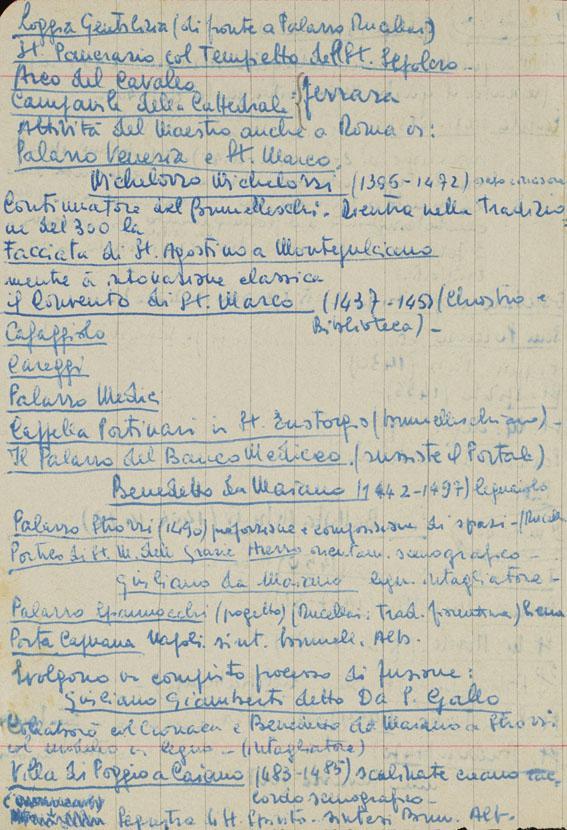 Loggia Gentilizia (di fronte a Palazzo Rucellai)
St Pancrazio col Tempietto dell St. Sepolcro
Arco del Cavallo
Campanile della Cattedrale } Ferrara
Attività del Maestro anche a Roma in:
Palazzo Venezia e St. Marco.
Michelozzo Michelozzi (1396-1472)
Continuatore del Brunelleschi. Rientra nella Tradizio
ne del 300 la
Facciata di St. Agostino a Montepulciano
mentre à intonazione classica
il Convento di St. Marco (1437-145 (Chiostro e
Biblioteca) -
Cafaggiolo
Careggi
Palazzo Medici
Cappella Portinari in St. Eustorgio (brunelleschiano) -
Il Palazzo del Banco Mediceo. (sussiste il Portale)
Benedetto da Maiano (1442-1497) legnaiolo
Palazzo Strozzi (1490) proporzione e composizione di spazi - (Rucellai
Portico di St. M. delle Grazie Arezzo orientam. scenografico -
Giuliano da Maiano legn. intagliatore -
Palazzo Spannocchi (progetto) (Rucellai: Trad. fiorentina) Siena
Porta Capuana Napoli. sint. brunell. Alb.
Svolgono un compiuto processo di fusione:
Giuliano Giamberti detto Da S. Gallo
Collaborò col Cronaca e Benedetto da Maiano a Strozzi
col modello in legno - (intagliatore)
Villa di Poggio a Caiano (1483-1485) scalinate
cordo scenografico -
Sagrestia di St. Spirito. sintesi Brun. Alb.